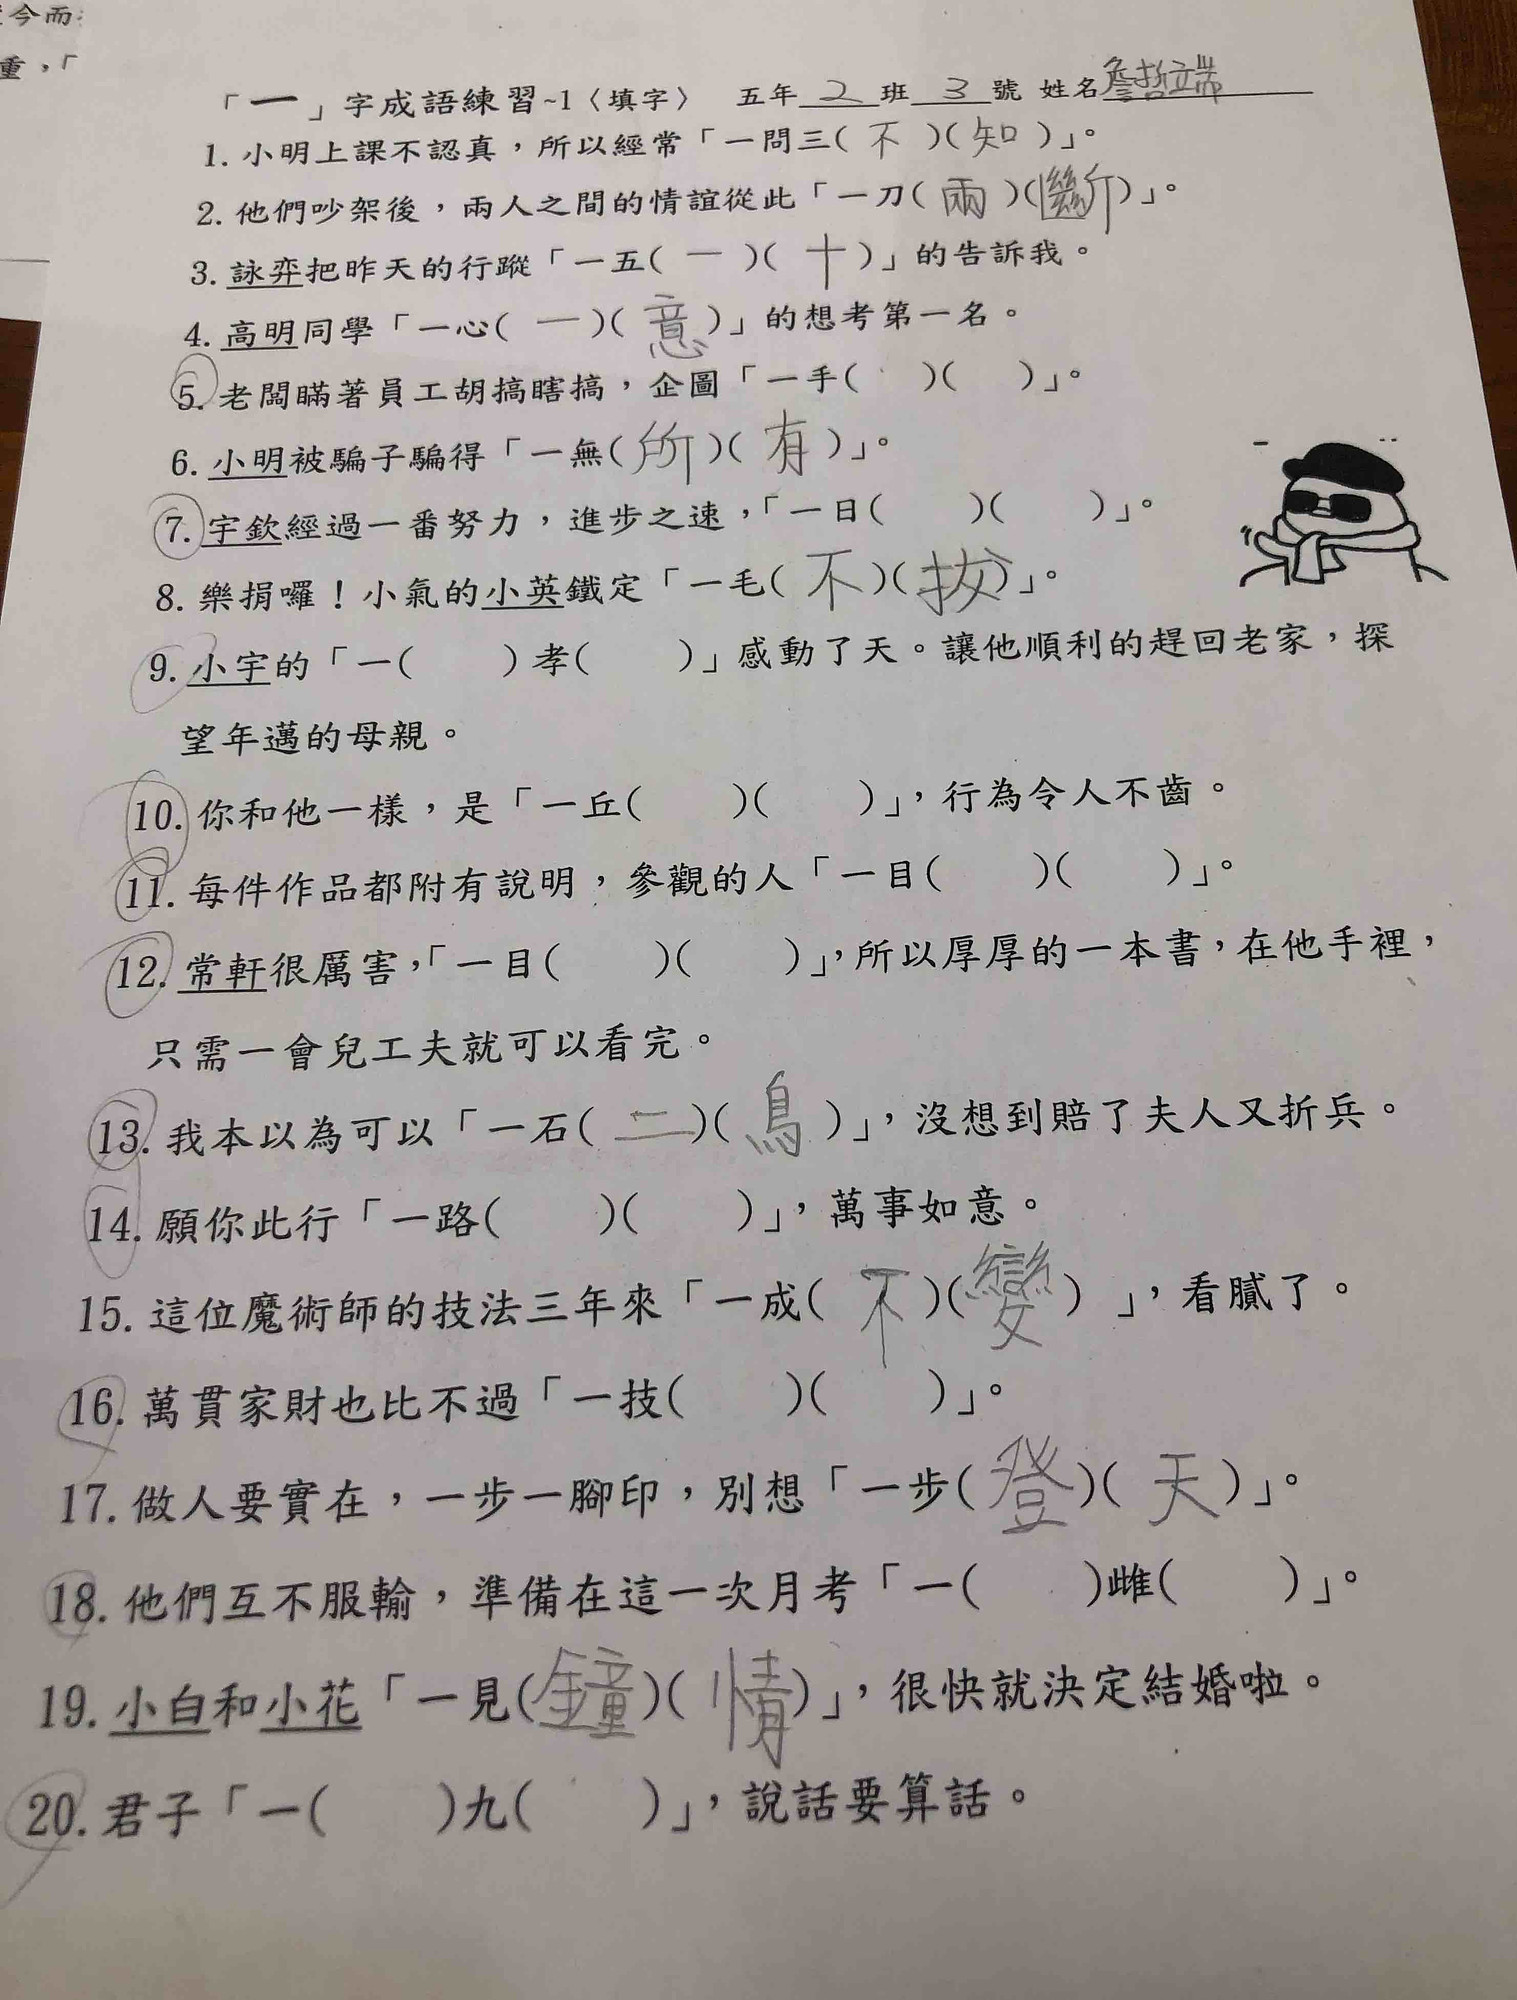 今而
重，「
「一」字成語練習~1〈填字〉 五年 2 班 3 號 姓名 詹哲端
1. 小明上課不認真，所以經常「一問三( 不 )( 知 )」。
2. 他們吵架後，兩人之間的情誼從此「一刀( 兩 )( 斷 )」。
3. 詠弈把昨天的行蹤「一五( 一 )( 十 )」的告訴我。
4. 高明同學「一心( 一 )( 意 )」的想考第一名。
5. 老闆瞞著員工胡搞瞎搞，企圖「一手( )( )」。
6. 小明被騙子騙得「一無( 所 )( 有 )」。
7. 宇欽經過一番努力，進步之速，「一日( )( )」。
8. 樂捐囉！小氣的小英鐵定「一毛( 不 )( 拔 )」。
9. 小宇的「一( )孝( )」感動了天。讓他順利的趕回老家，探
望年邁的母親。
10. 你和他一樣，是「一丘( )( )」，行為令人不齒。
11. 每件作品都附有說明，參觀的人「一目( )( )」。
12. 常軒很厲害，「一目( )( )」，所以厚厚的一本書，在他手裡，
只需一會兒工夫就可以看完。
13. 我本以為可以「一石( 二 )( 鳥 )」，沒想到賠了夫人又折兵。
14. 願你此行「一路( )( )」，萬事如意。
15. 這位魔術師的技法三年來「一成( 不 )( 變 ) 」，看膩了。
16. 萬貫家財也比不過「一技( )( )」。
17. 做人要實在，一步一腳印，別想「一步( 登 )( 天 )」。
18. 他們互不服輸，準備在這一次月考「一( )雌( )」。
19. 小白和小花「一見( 鐘 )( 情 )」，很快就決定結婚啦。
20. 君子「一( )九( )」，說話要算話。